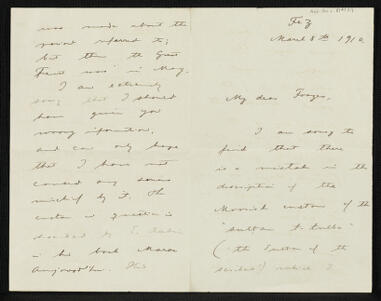 Fez
March 8th 1910
My dear Frazer,
I am sorry to
find that there
is a mistake in the
description of the
Moorish custom of the
"sultan t-tulba"
("the Sultan of the
scribes") which I
was made about the
point referred to;
but then the Great
Feast was in May.
I am extremely
sorry that I should
have given you
wrong information,
and can only hope
that I have not
caused any serious
mischief by it. The
custom in question is
described by E. Aubin
in his book Maroc
d'aujourd'hui. This